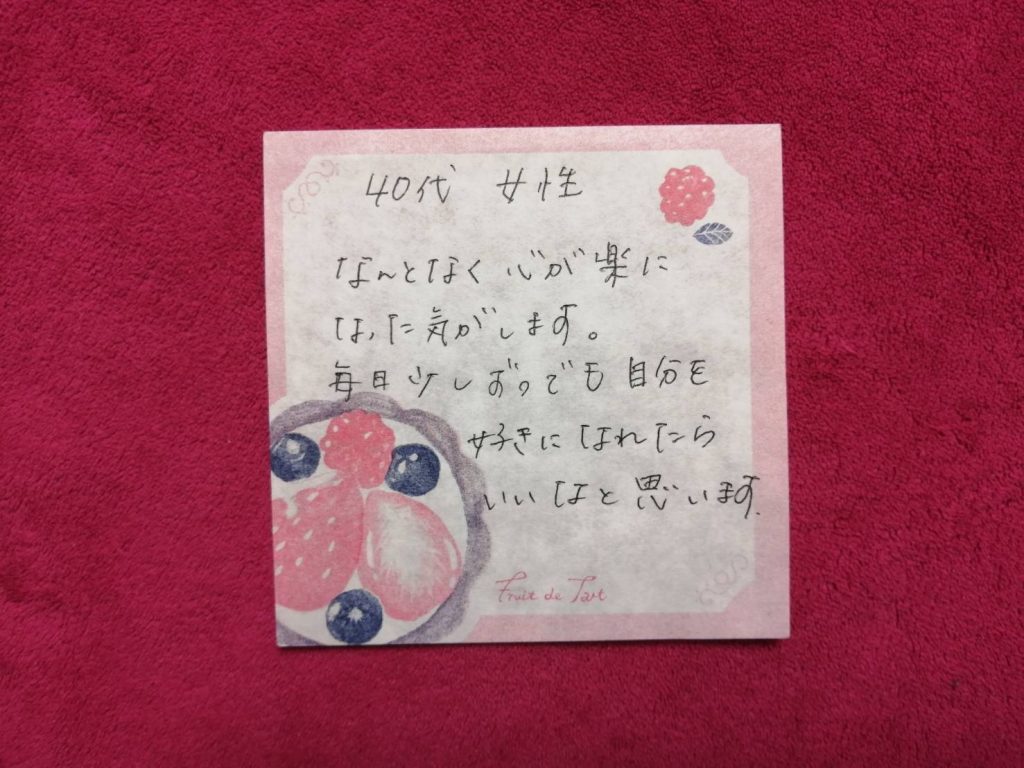 40代 女性
なんとなく 心が 楽に
なった気がします。
毎日 少しずつでも 自分を
好きに なれたら
いいなと 思います.
Fruit de Tart